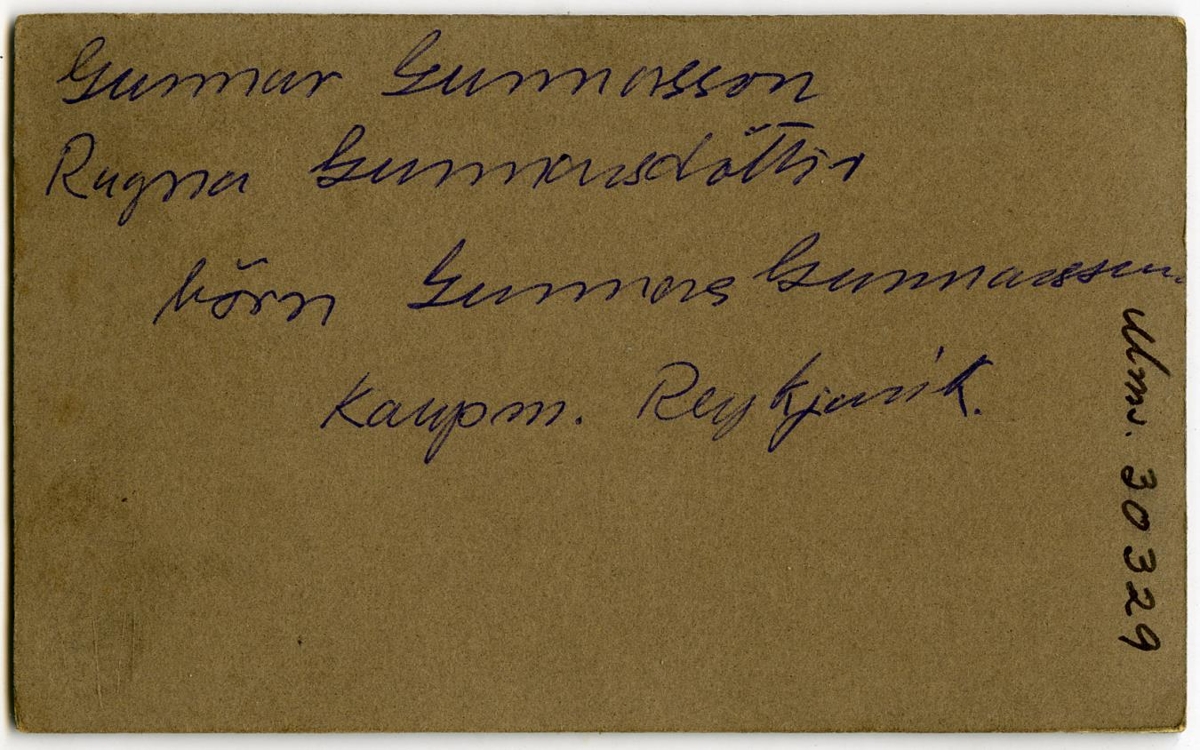 Gunnar Gunnarsson
Ragna Gunnarsdóttir
börn Gunnars Gunnarsson
Kaupm. Reykjavík.
Mms. 30329